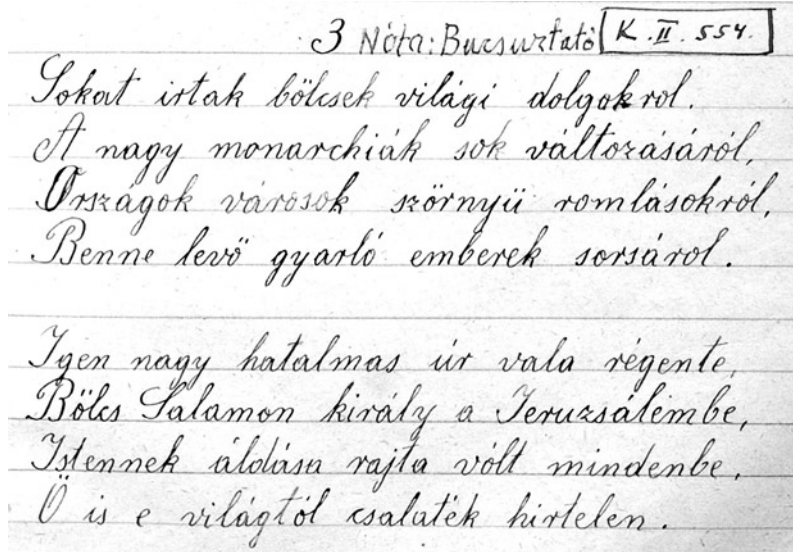 3 Nóta: Bucsuztató K. II. 554.
Sokat irtak bölcsek világi dolgokrol.
A nagy monarchiák sok változásáról,
Országok városok szörnyü romlásokról,
Benne levő gyarló emberek sorsárol.
Igen nagy hatalmas úr vala régente,
Bölcs Salamon király a Jeruzsálembe,
Istennek áldása rajta vólt mindenbe,
Ő is e világtól csalaték hirtelen.